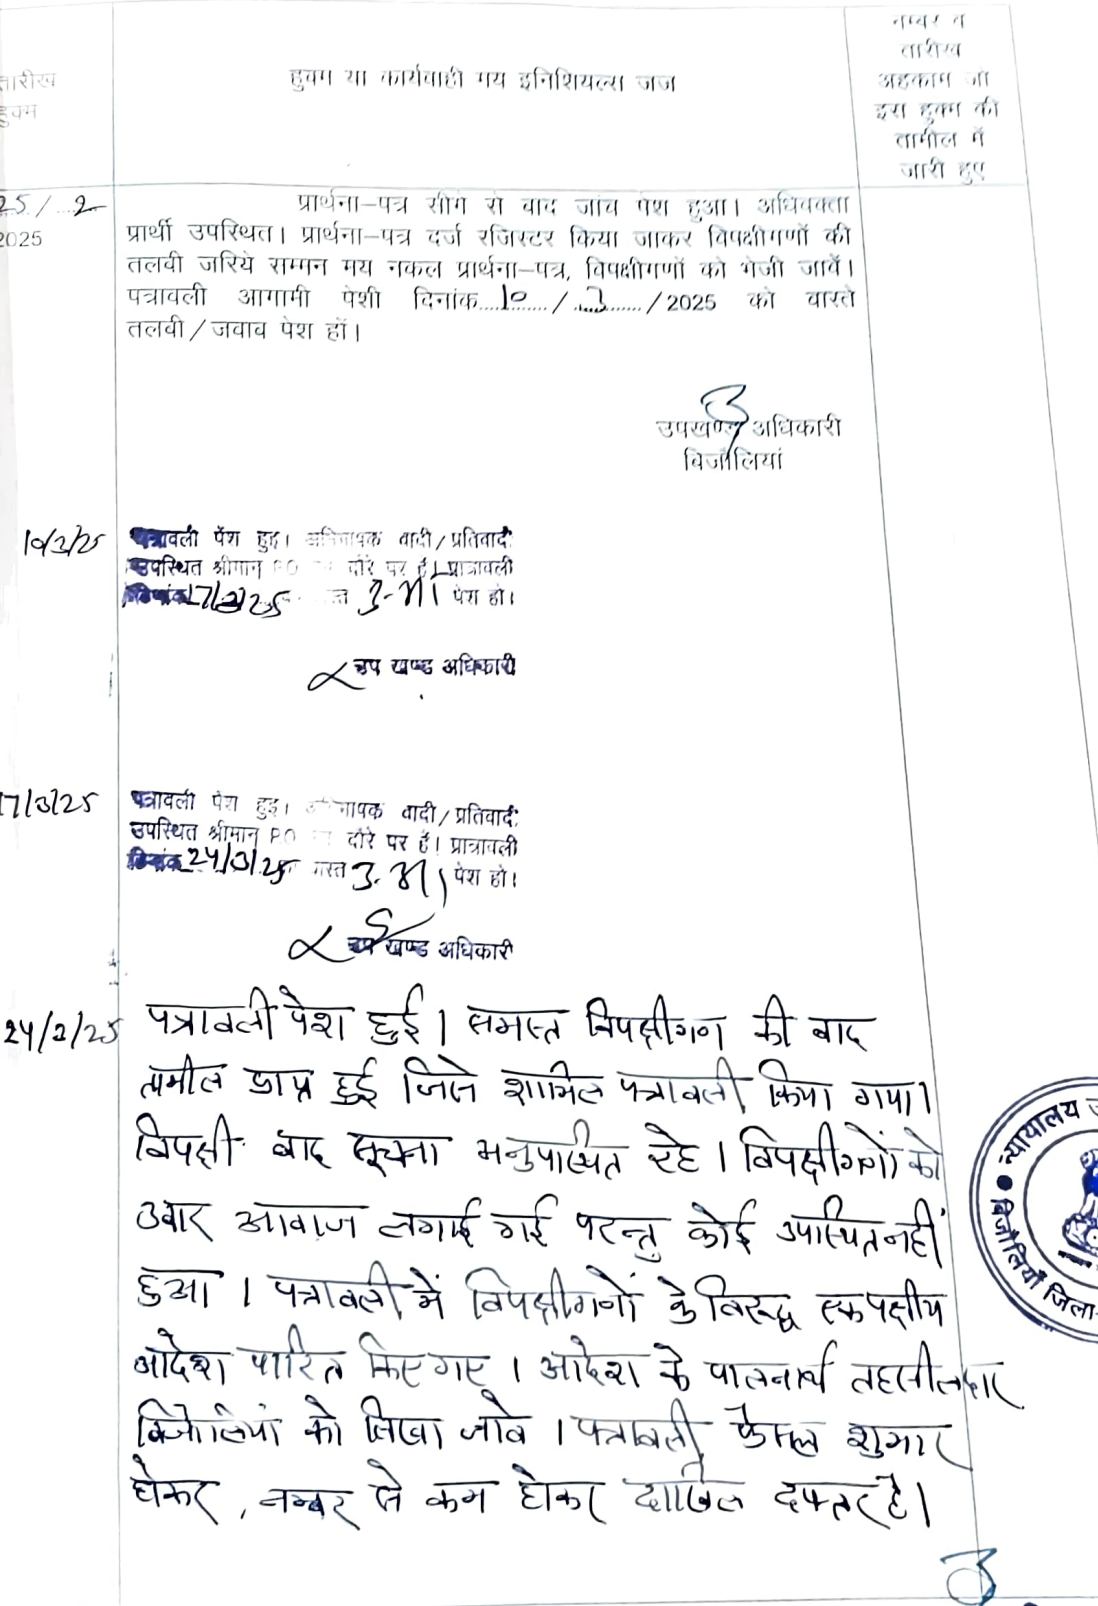 नम्बर व
तारीख
अहकाम जो
इस हुक्म की
तामील में
जारी हुए
तारीख
हुक्म
हुक्म या कार्यवाही मय इनिशियल्स जज
25/2
2025
प्रार्थना-पत्र सीगे से बाद जांच पेश हुआ। अधिवक्ता
प्रार्थी उपस्थित। प्रार्थना-पत्र दर्ज रजिस्टर किया जाकर विपक्षीगणों की
तलवी जरिये सम्मन मय नकल प्रार्थना-पत्र, विपक्षीगणों को भेजी जावें।
पत्रावली आगामी पेशी दिनांक....10....../...3....../2025 को वास्ते
तलवी/जवाव पेश हों।
उपखण्ड अधिकारी
बिजौलियां
10/3/25
पत्रावली पेश हुइ। वादी/प्रतिवादी
उपस्थित श्रीमान P.O दौरे पर है। प्रात्रावली
दिनांक 17/3/25 पेश हो।
उप खण्ड अधिकारी
17/3/25
पत्रावली पेश हुइ। वादी/प्रतिवादी
उपस्थित श्रीमान P.O दौरे पर हैं। प्रात्रावली
दिनांक 24/3/25 पेश हो।
उप खण्ड अधिकारी
24/3/25
पत्रावली पेश हुई। समस्त विपक्षीगण की बाद
तामील प्राप्त हुई जिसे शामिल पत्रावली किया गया।
विपक्षी बाद सूचना अनुपस्थित रहे। विपक्षीगणों को
3 बार आवाज लगाई गई परन्तु कोई उपस्थित नहीं
हुआ। पत्रावली में विपक्षीगणों के विरुद्ध एकपक्षीय
आदेश पारित किए गए। आदेश के पालनार्थ तहसीलदार
बिजौलियां को लिखा जावे। पत्रावली फैसल शुमार
होकर, नम्बर से कम होकर दाखिल दफ्तर है।
न्यायालय
बिजौलियाँ जिला